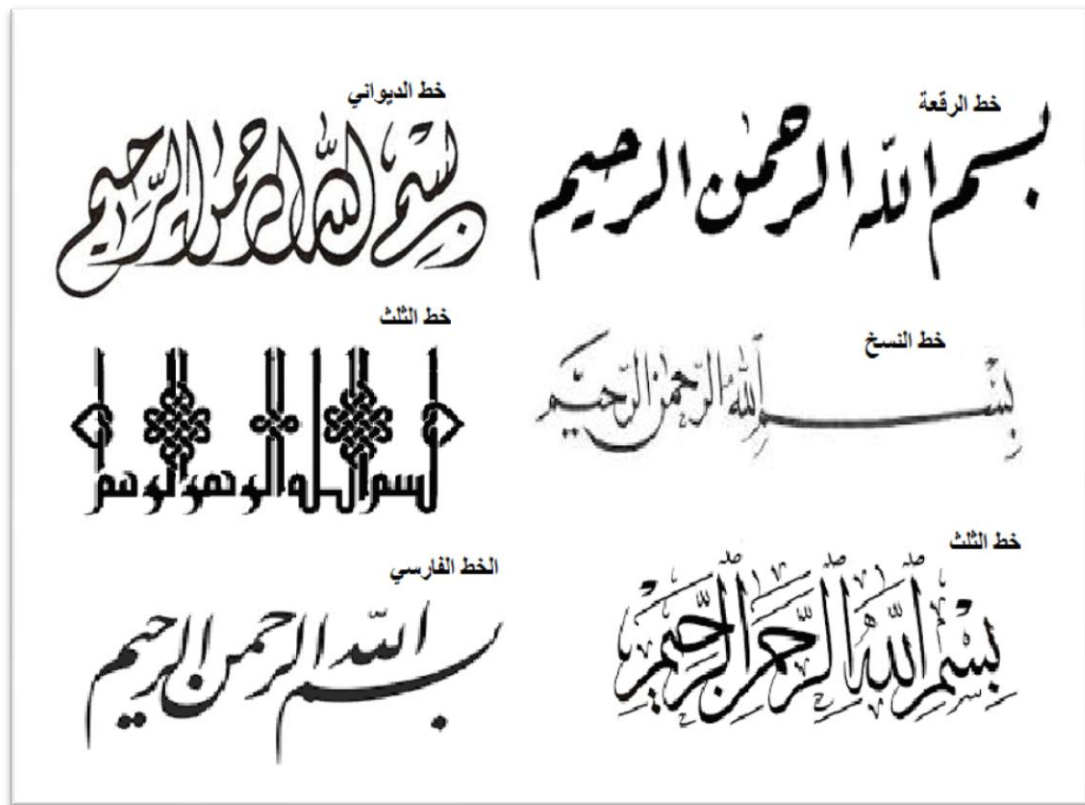 خط الرقعة
بسم الله الرحمن الرحيم
خط الديواني
بسم الله الرحمن الرحيم
خط النسخ
بِسْمِ اللهِ الرَّحمٰنِ الرَّحِيمِ
خط الثلث
بسم الله الرحمن الرحيم
خط الثلث
بِسْمِ اللهِ الرَّحْمٰنِ الرَّحِيمِ
الخط الفارسي
بسم الله الرحمن الرحيم